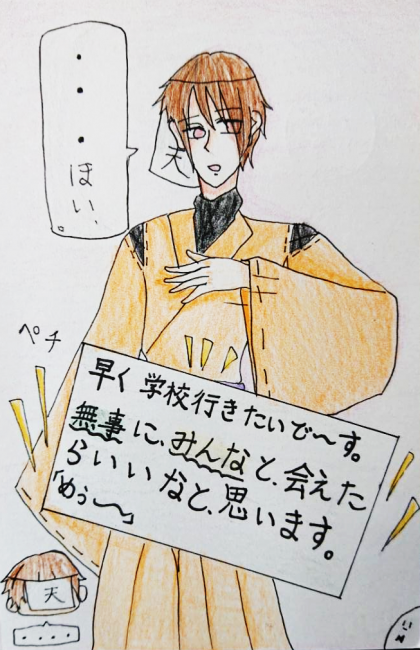 ・・・ほい、。
天
ペチ
早く学校行きたいで〜す。
無事に、みんなと、会えた
らいいなと、思います。
「めぅ〜」
天
・・・・